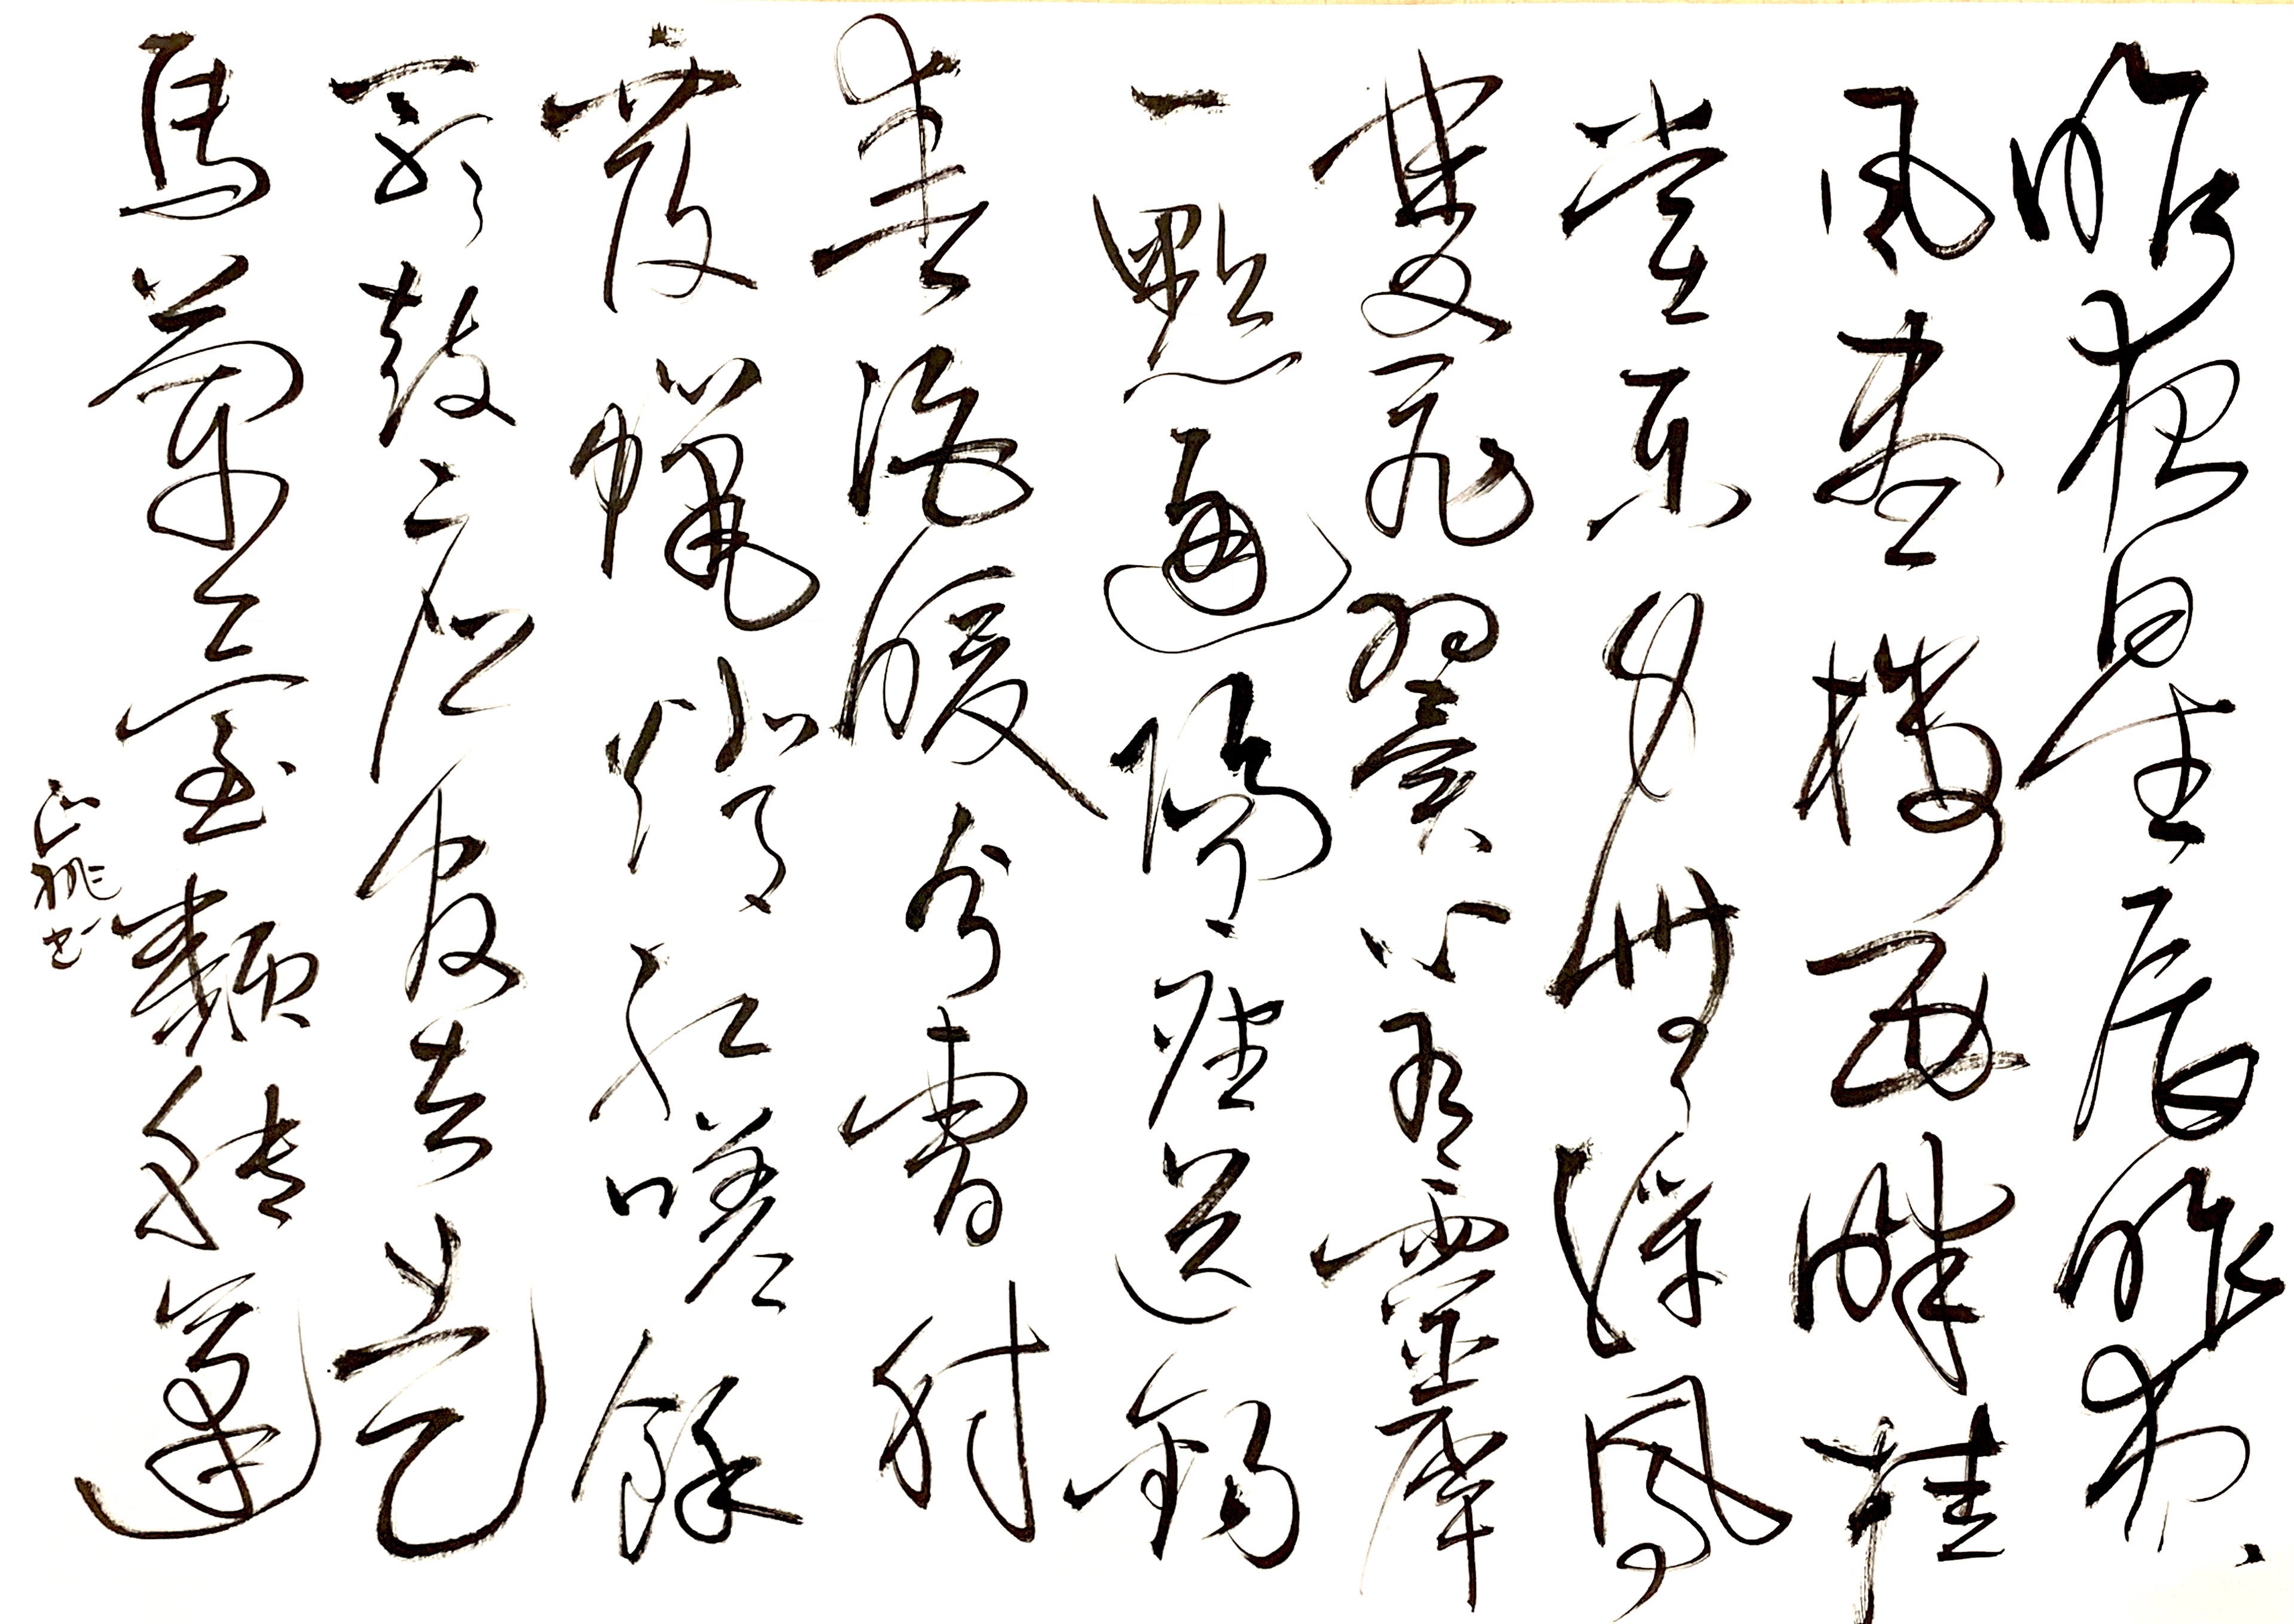 昨夜星辰昨夜
風畫樓西畔桂
堂東身無彩鳳
雙飛翼心有靈犀
一點通隔座送鈎
春酒暖分曹射
覆蠟燈紅嗟餘
聽鼓應官去走
馬蘭臺類轉蓬